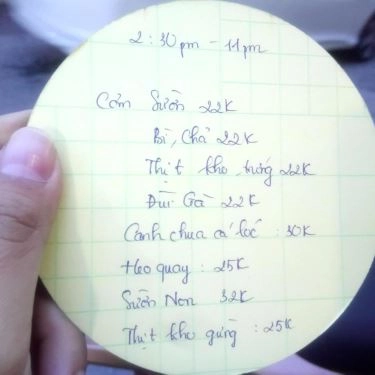 2:30pm - 11pm
Cơm Sườn 22K
Bì, Chả 22K
Thịt kho trứng 22K
Đùi Gà 22K
Canh chua cá lóc : 30K
Heo quay : 25K
Sườn Non 32K
Thịt kho gừng : 25K